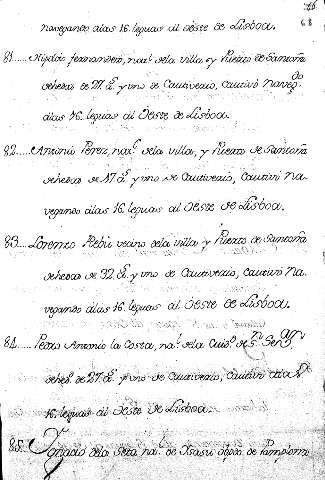 68
navegando alas 16. leguas al Oeste de Lisboa.
81.... Nicolas fernandez, nat.l dela villa, y Puerto de Santoña
dehedad de 27. a.s y uno de Cautiverio, cautivó naveg.do
alas 16. leguas al Oeste de Lisboa.
82.... Antonio Perez, nat.l dela villa, y Puerto de Santoña
dehedad de 17 a.s y uno de Cautiverio, Cautivó na
vegando alas 16. leguas al Oeste de Lisboa.
83.... Lorenzo vecino dela villa y Puerto de Santoña
dehedad de 32. a.s y uno de Cautiverio, cautivó na
vegando alas 16. leguas al Oeste de Lisboa.
84.... Pedro Antonio la Costa, na.l dela Ciud.d de
dehed.d de 27. a.s y uno de Cautiverio, cautivó
16. leguas al Oeste de Lisboa.
85.... Ygnacio dela nat.l de de Pamplona